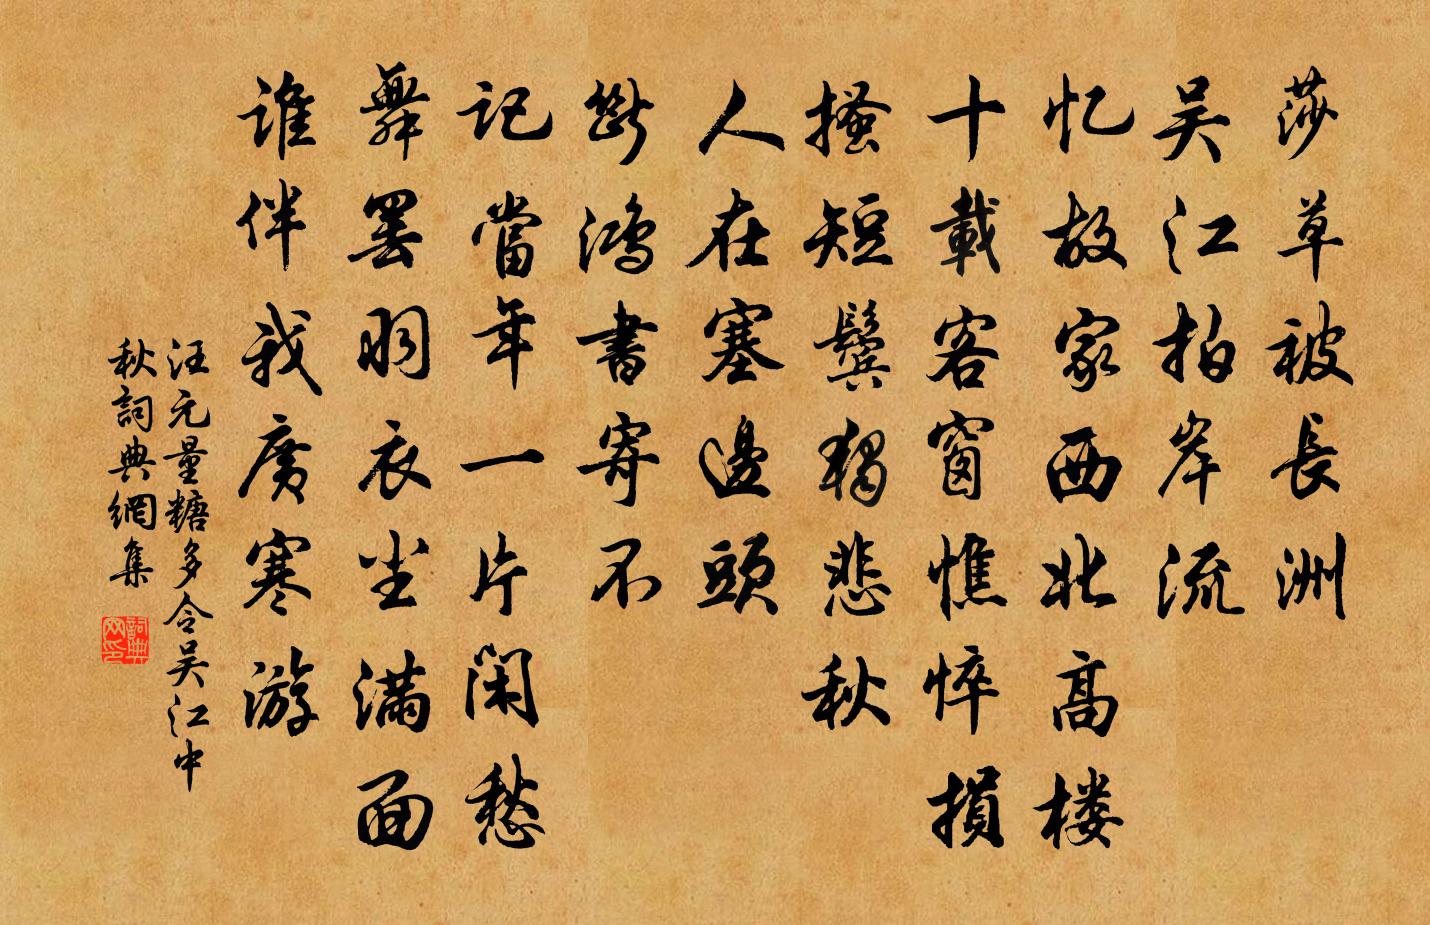 莎草被長洲
吴江拍岸流
忆故家西北高楼
十載客窗憔悴損
搔短鬢獨悲秋
人在塞邊頭
斷鴻書寄不
记當年一片闲愁
舞罢羽衣尘满面
谁伴我廣寒游
汪元量糖多令吴江中
秋詞典網集
詞典网印